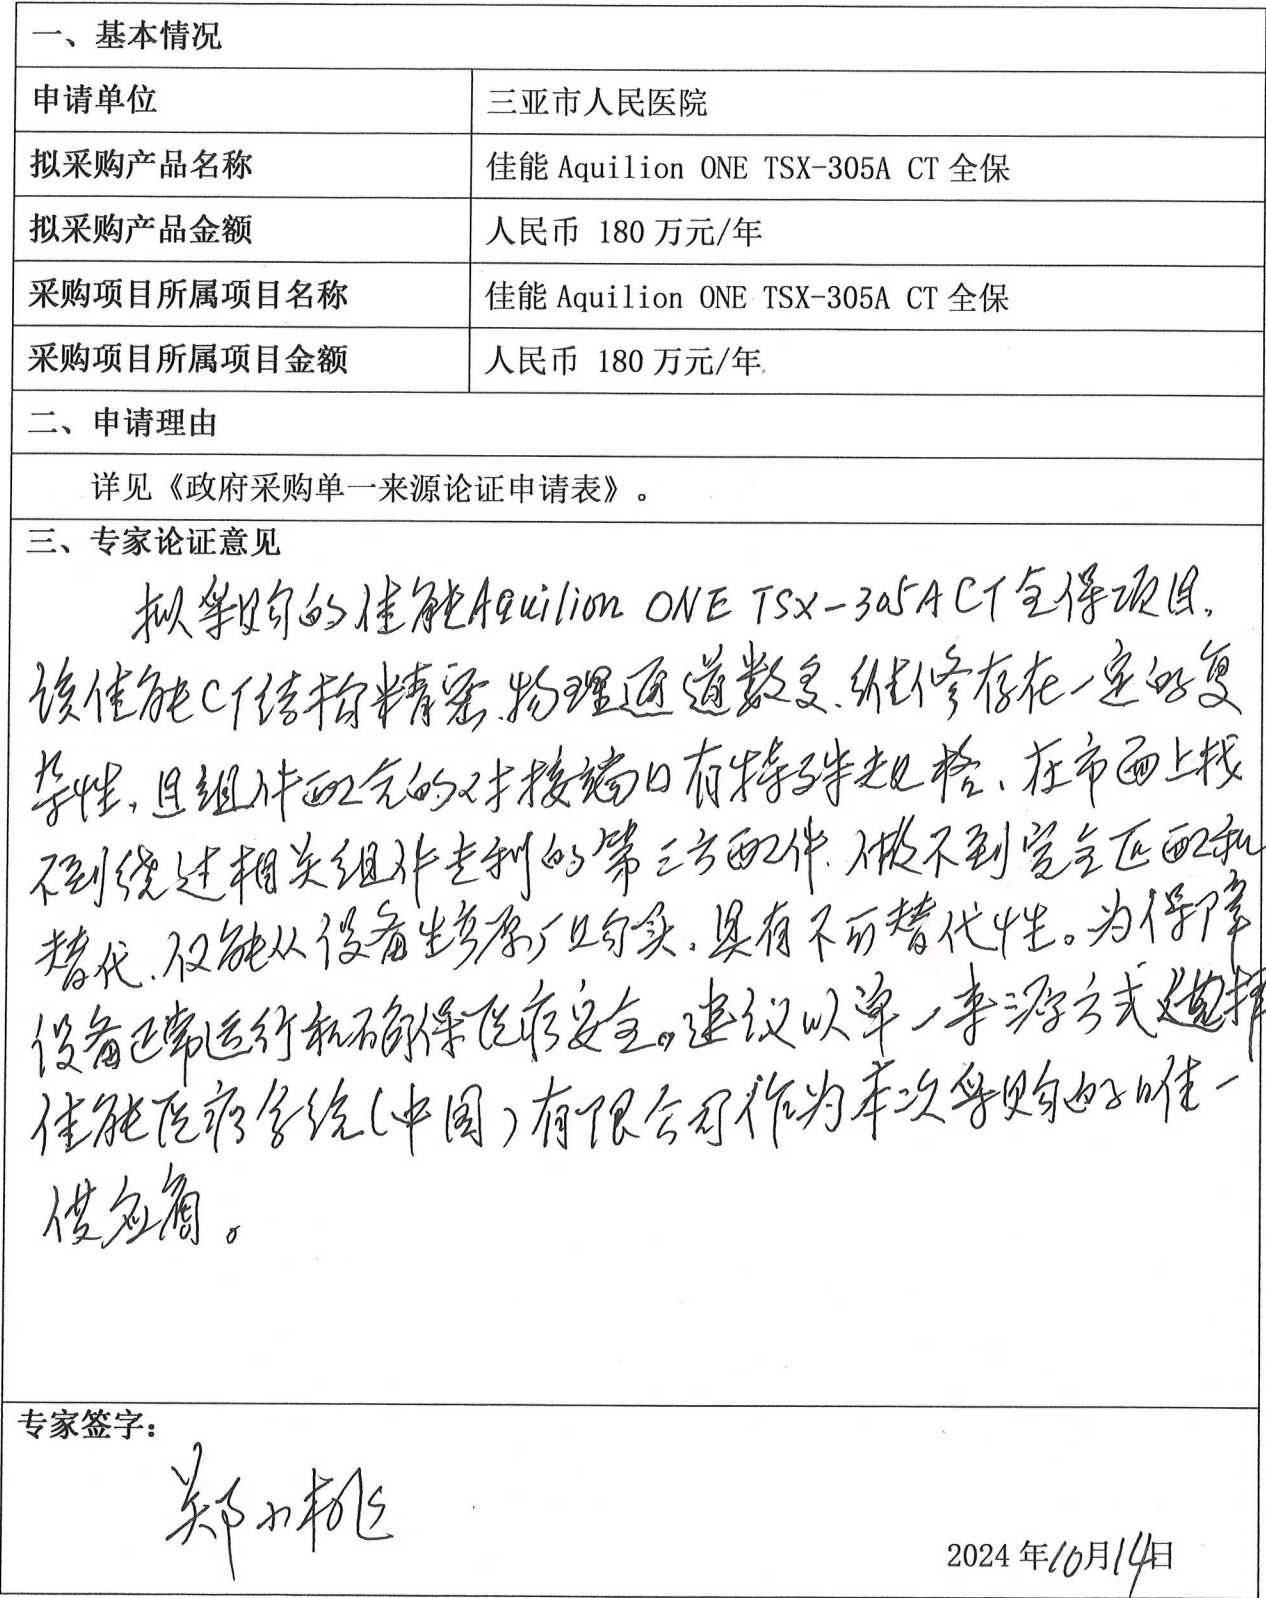 一、基本情况
申请单位 三亚市人民医院
拟采购产品名称 佳能 Aquilion ONE TSX-305A CT 全保
拟采购产品金额 人民币 180 万元/年
采购项目所属项目名称 佳能 Aquilion ONE TSX-305A CT 全保
采购项目所属项目金额 人民币 180 万元/年
二、申请理由
详见《政府采购单一来源论证申请表》。
三、专家论证意见
拟采购的佳能Aquilion ONE TSX-305A CT全保项目,
该佳能CT结构精密、物理通道数多、维修存在一定的复
杂性,且组件配完的对接端口有特殊规格、在市面上找
不到绕过相关组件专利的第三方配件、做不到完全匹配和
替代、仅能从设备生产原厂购买,具有不可替代性。为保障
设备正常运行和确保医疗安全。建议以单一来源方式选择
佳能医疗系统(中国)有限公司作为本次采购的唯一
供应商。
专家签字:
郑小桃
2024 年10月14日